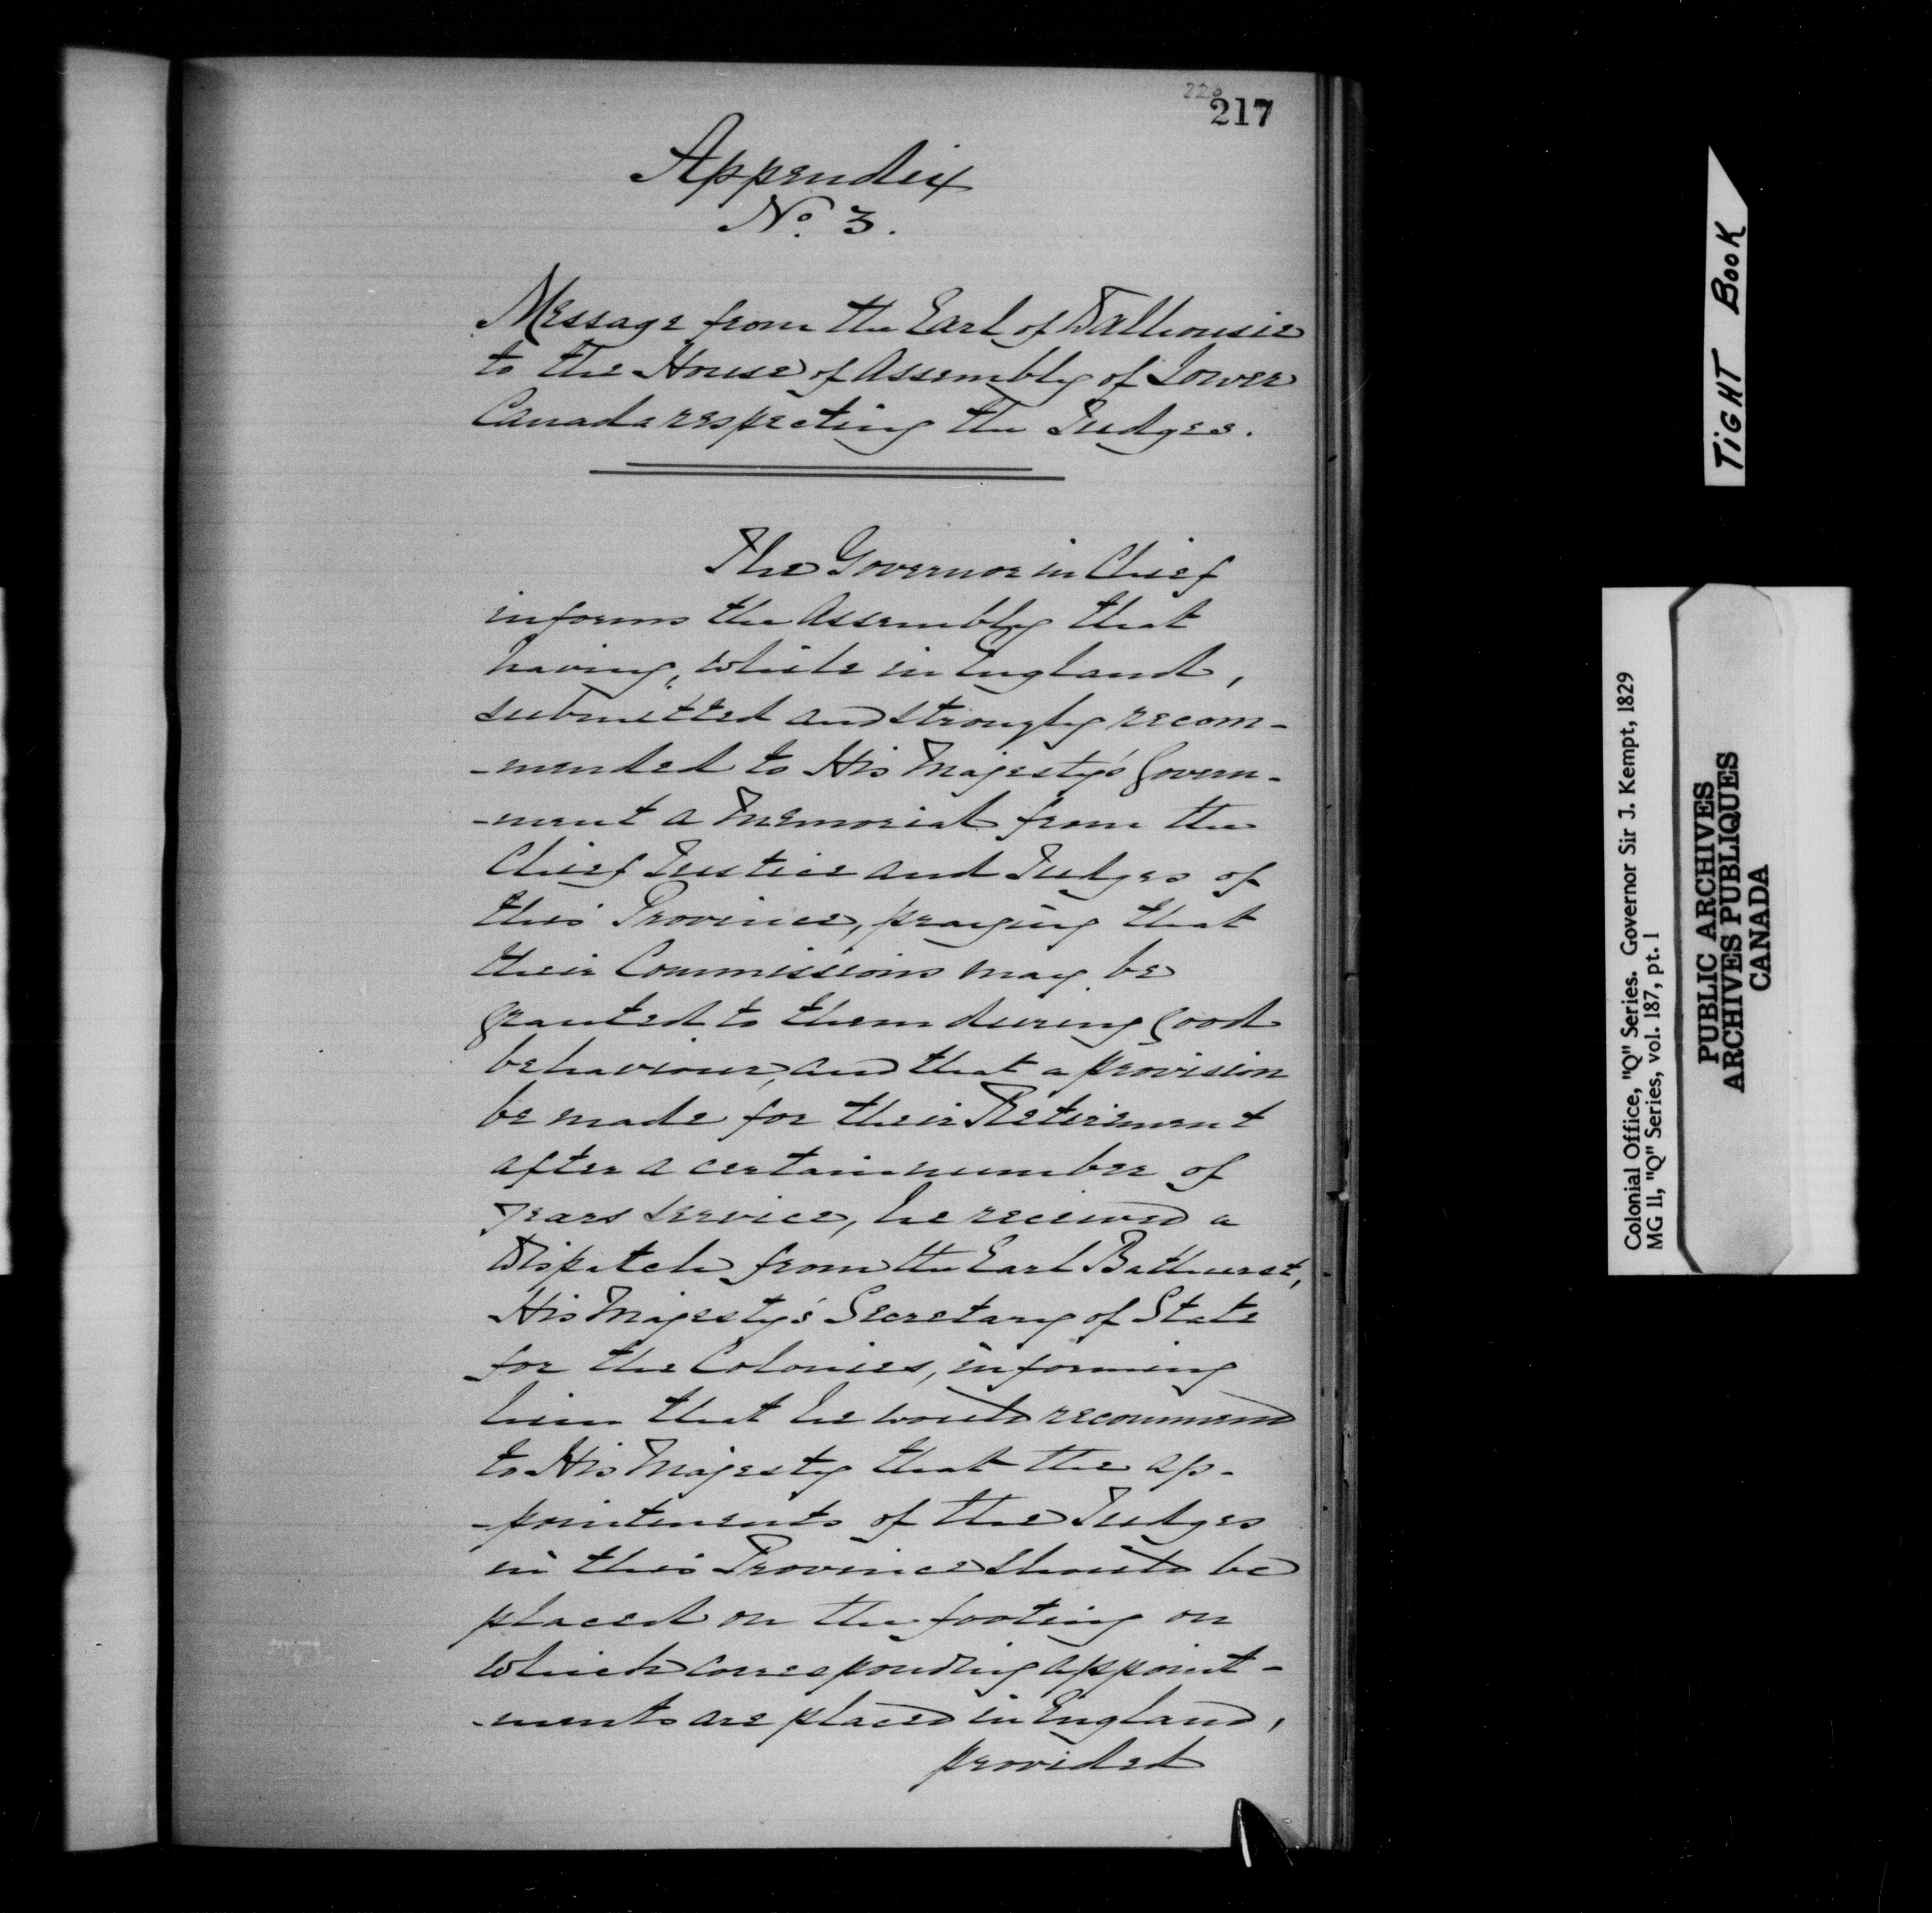 220
217
Appendix
No. 3.
Message from the Earl of Dalhousie
to the House of Assembly of Lower
Canada respecting the Judges.
The Governor in Chief
informs the Assembly that
having, while in England,
submitted and strongly recom-
-mended to His Majesty's Govern-
-ment a Memorial from the
Chief Justice and Judges of
this Province, praying that
their Commissions may be
granted to them during good
behaviour, and that a provision
be made for their Retirement
after a certain number of
years service, he received a
Dispatch from the Earl Bathurst,
His Majesty's Secretary of State
for the Colonies, informing
him that he would recommend
to His Majesty that the ap-
-pointments of the Judges
in this Province should be
placed on the footing on
which corresponding appoint-
-ments are placed in England,
provided
TIGHT BOOK
Colonial Office, "Q" Series. Governor Sir J. Kempt, 1829
MG 11, "Q" Series, vol. 187, pt. 1
PUBLIC ARCHIVES
ARCHIVES PUBLIQUES
CANADA